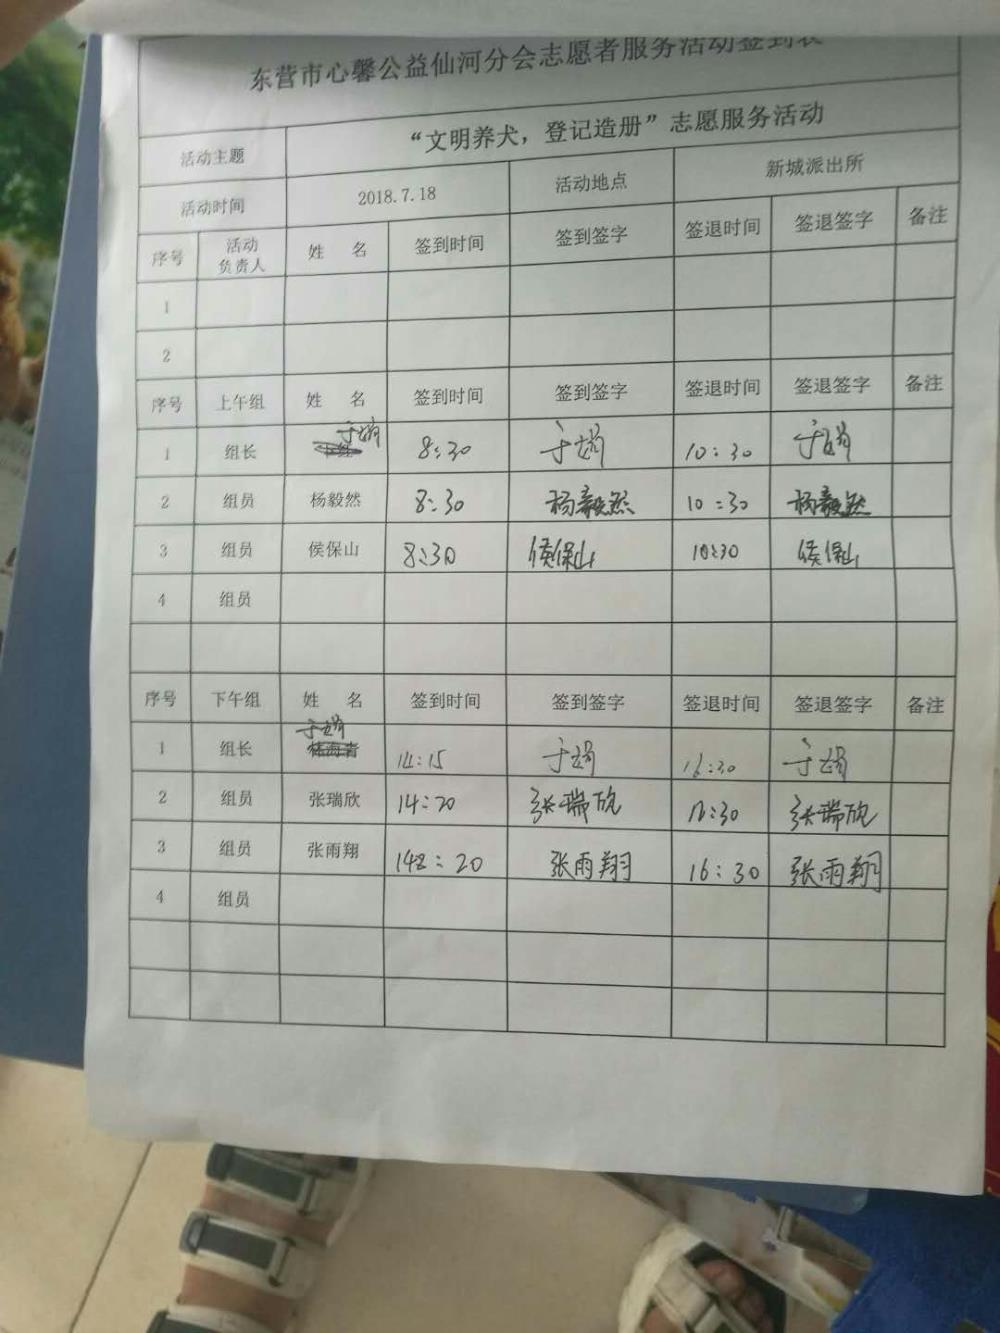 东营市心馨公益仙河分会志愿者服务活动签到表
活动主题 “文明养犬，登记造册”志愿服务活动
活动时间 2018.7.18 活动地点 新城派出所
序号 活动负责人 姓 名 签到时间 签到签字 签退时间 签退签字 备注
1
2
序号 上午组 姓 名 签到时间 签到签字 签退时间 签退签字 备注
1 组长 于娟 8:30 于娟 10:30 于娟
2 组员 杨毅然 8:30 杨毅然 10:30 杨毅然
3 组员 侯保山 8:30 侯保山 10:30 侯保山
4 组员
序号 下午组 姓 名 签到时间 签到签字 签退时间 签退签字 备注
1 组长 于娟 14:15 于娟 16:30 于娟
2 组员 张瑞欣 14:20 张瑞欣 16:30 张瑞欣
3 组员 张雨翔 14:20 张雨翔 16:30 张雨翔
4 组员